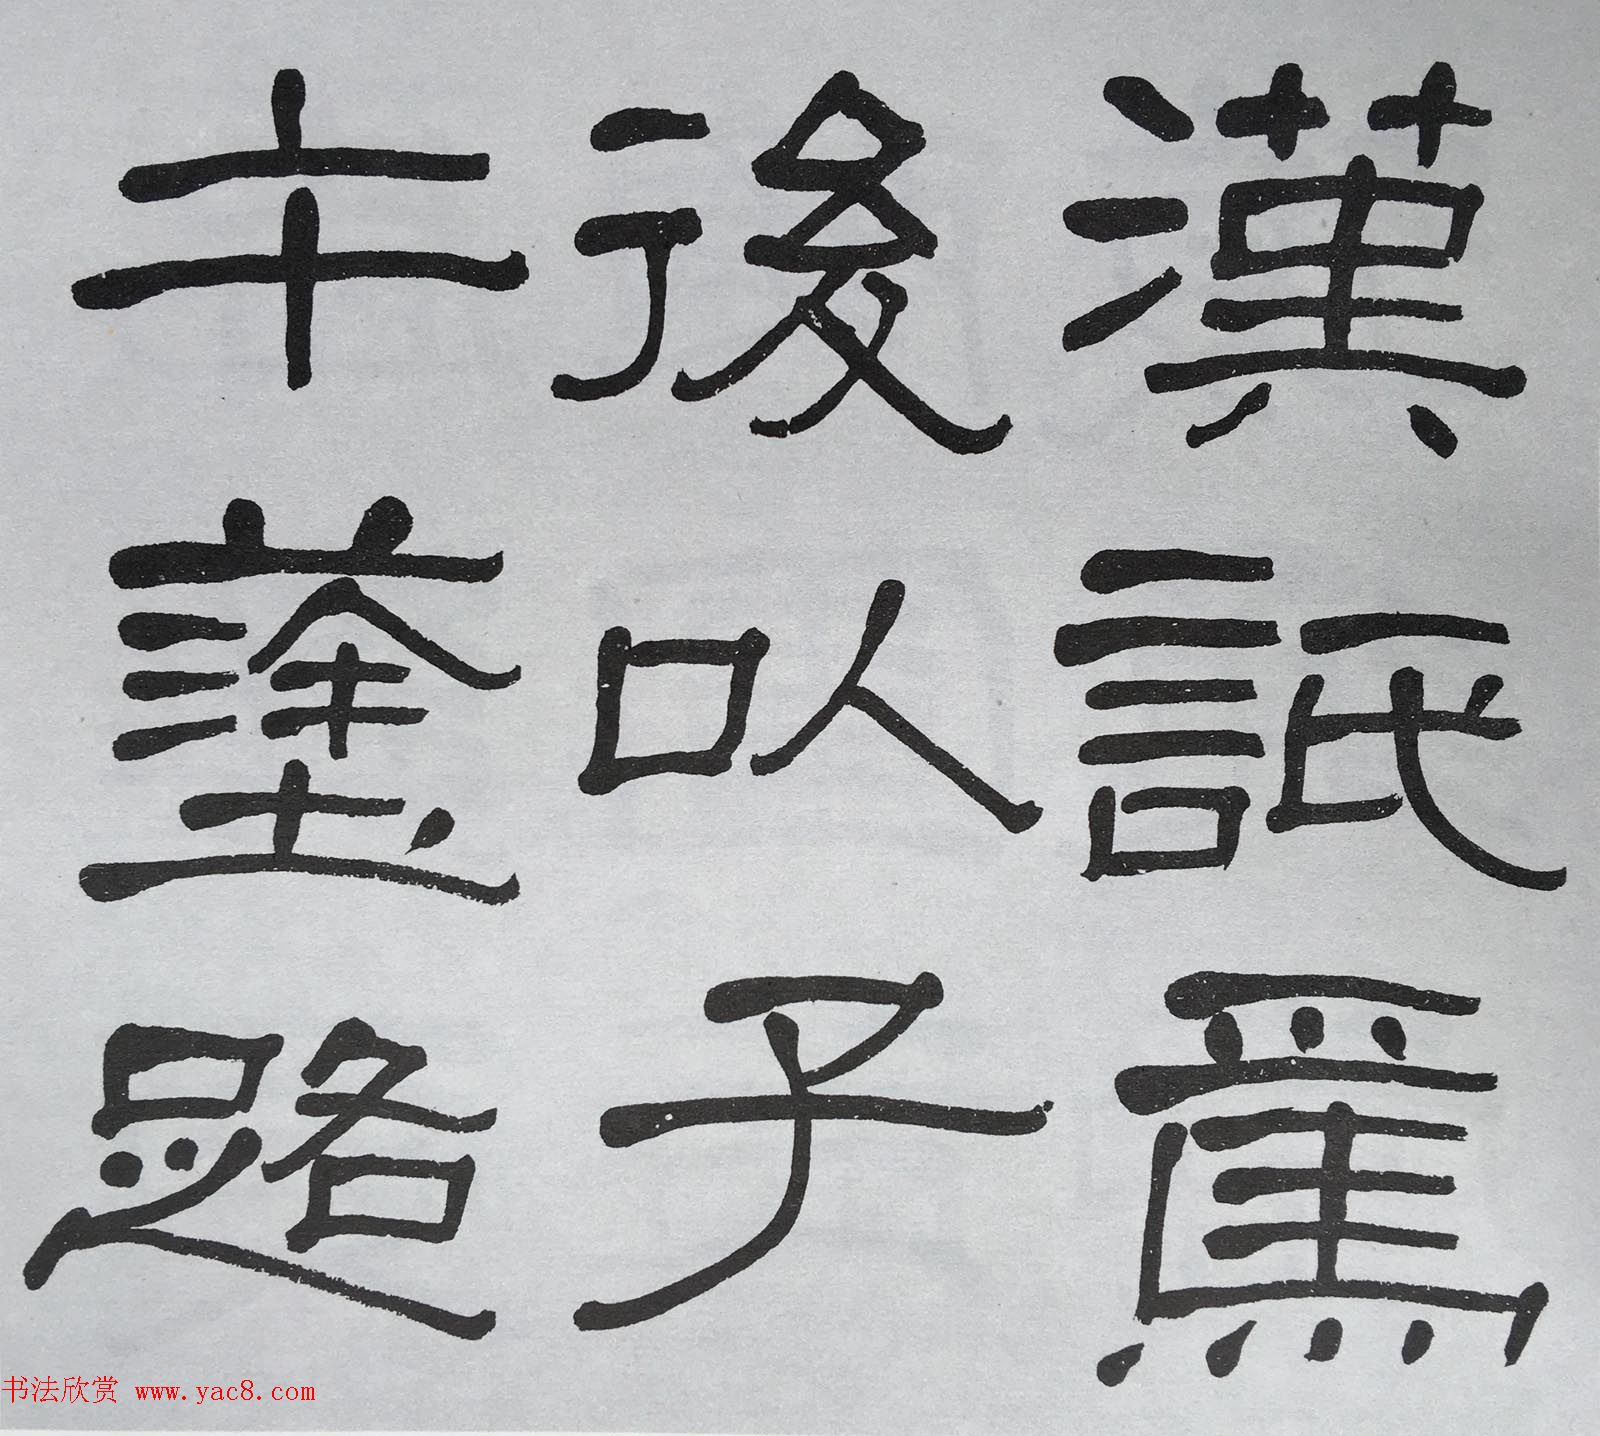 漢詆焉
後以子
午塗路
书法欣赏 www.yac8.com